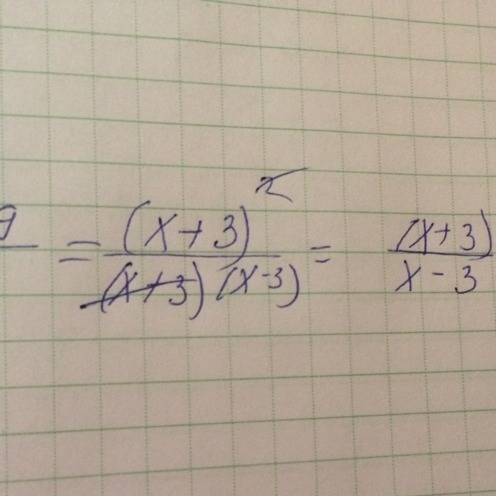 9/ = (x+3)²/((x+3)(x-3)) = (x+3)/(x-3)